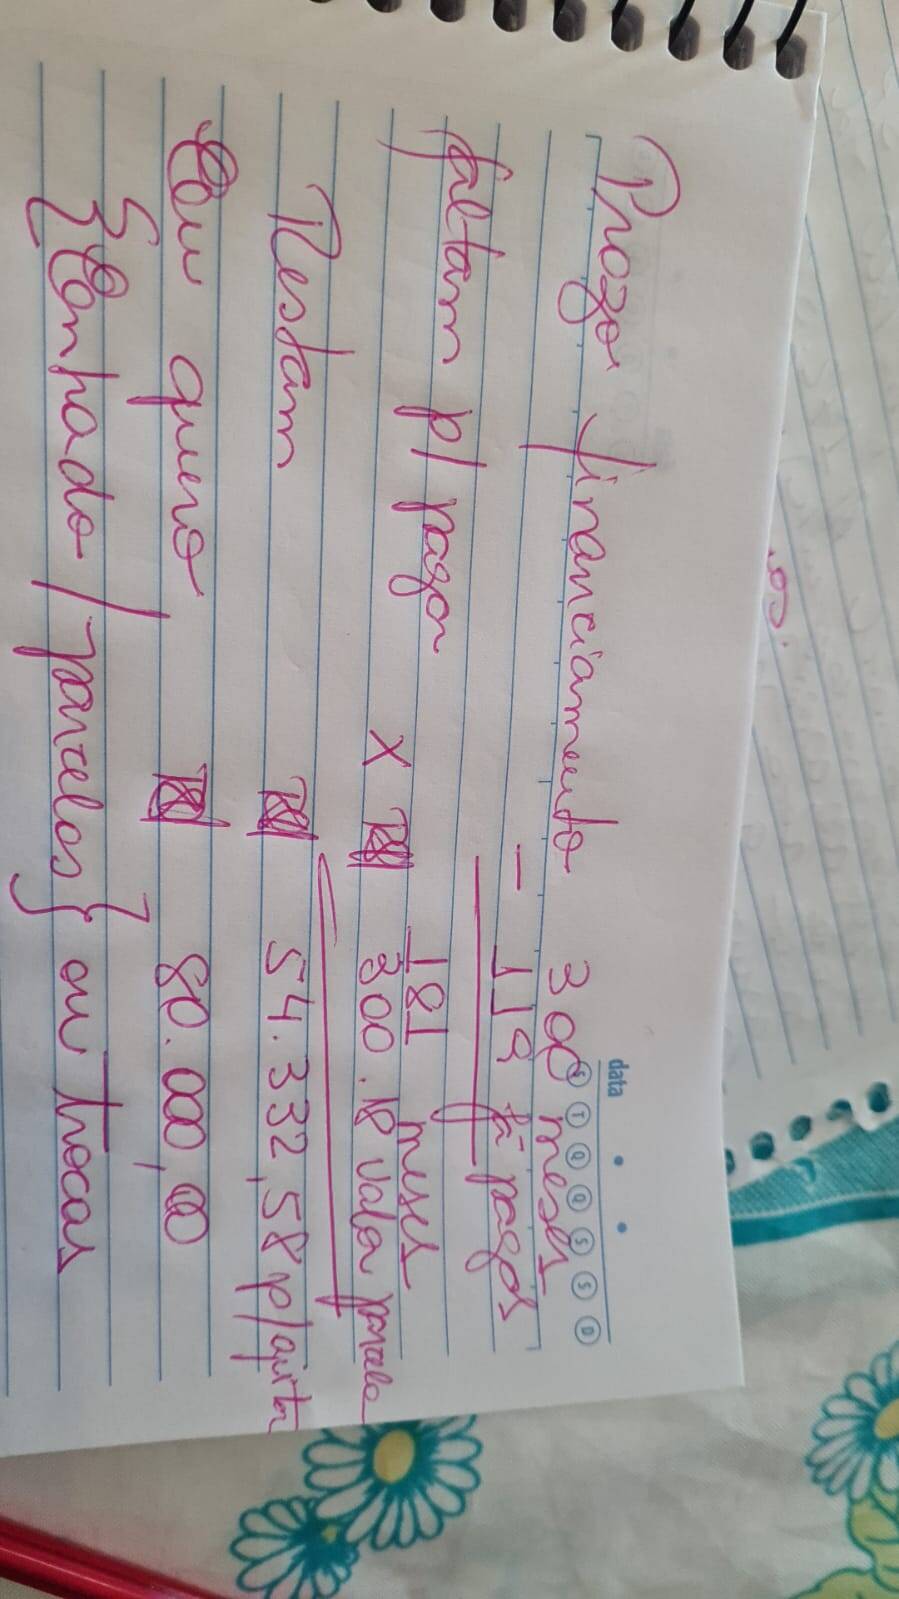 data
S T Q Q S S D
Prazo financiamento 300 meses
- 119 já pagos
faltam p/ pagar 181 meses
x R$ 300.18 valor parcela
Restam R$ 54.332,58 p/ quitar
Eu quero R$ 80.000,00
{Entrada / parcelas} ou Trocas